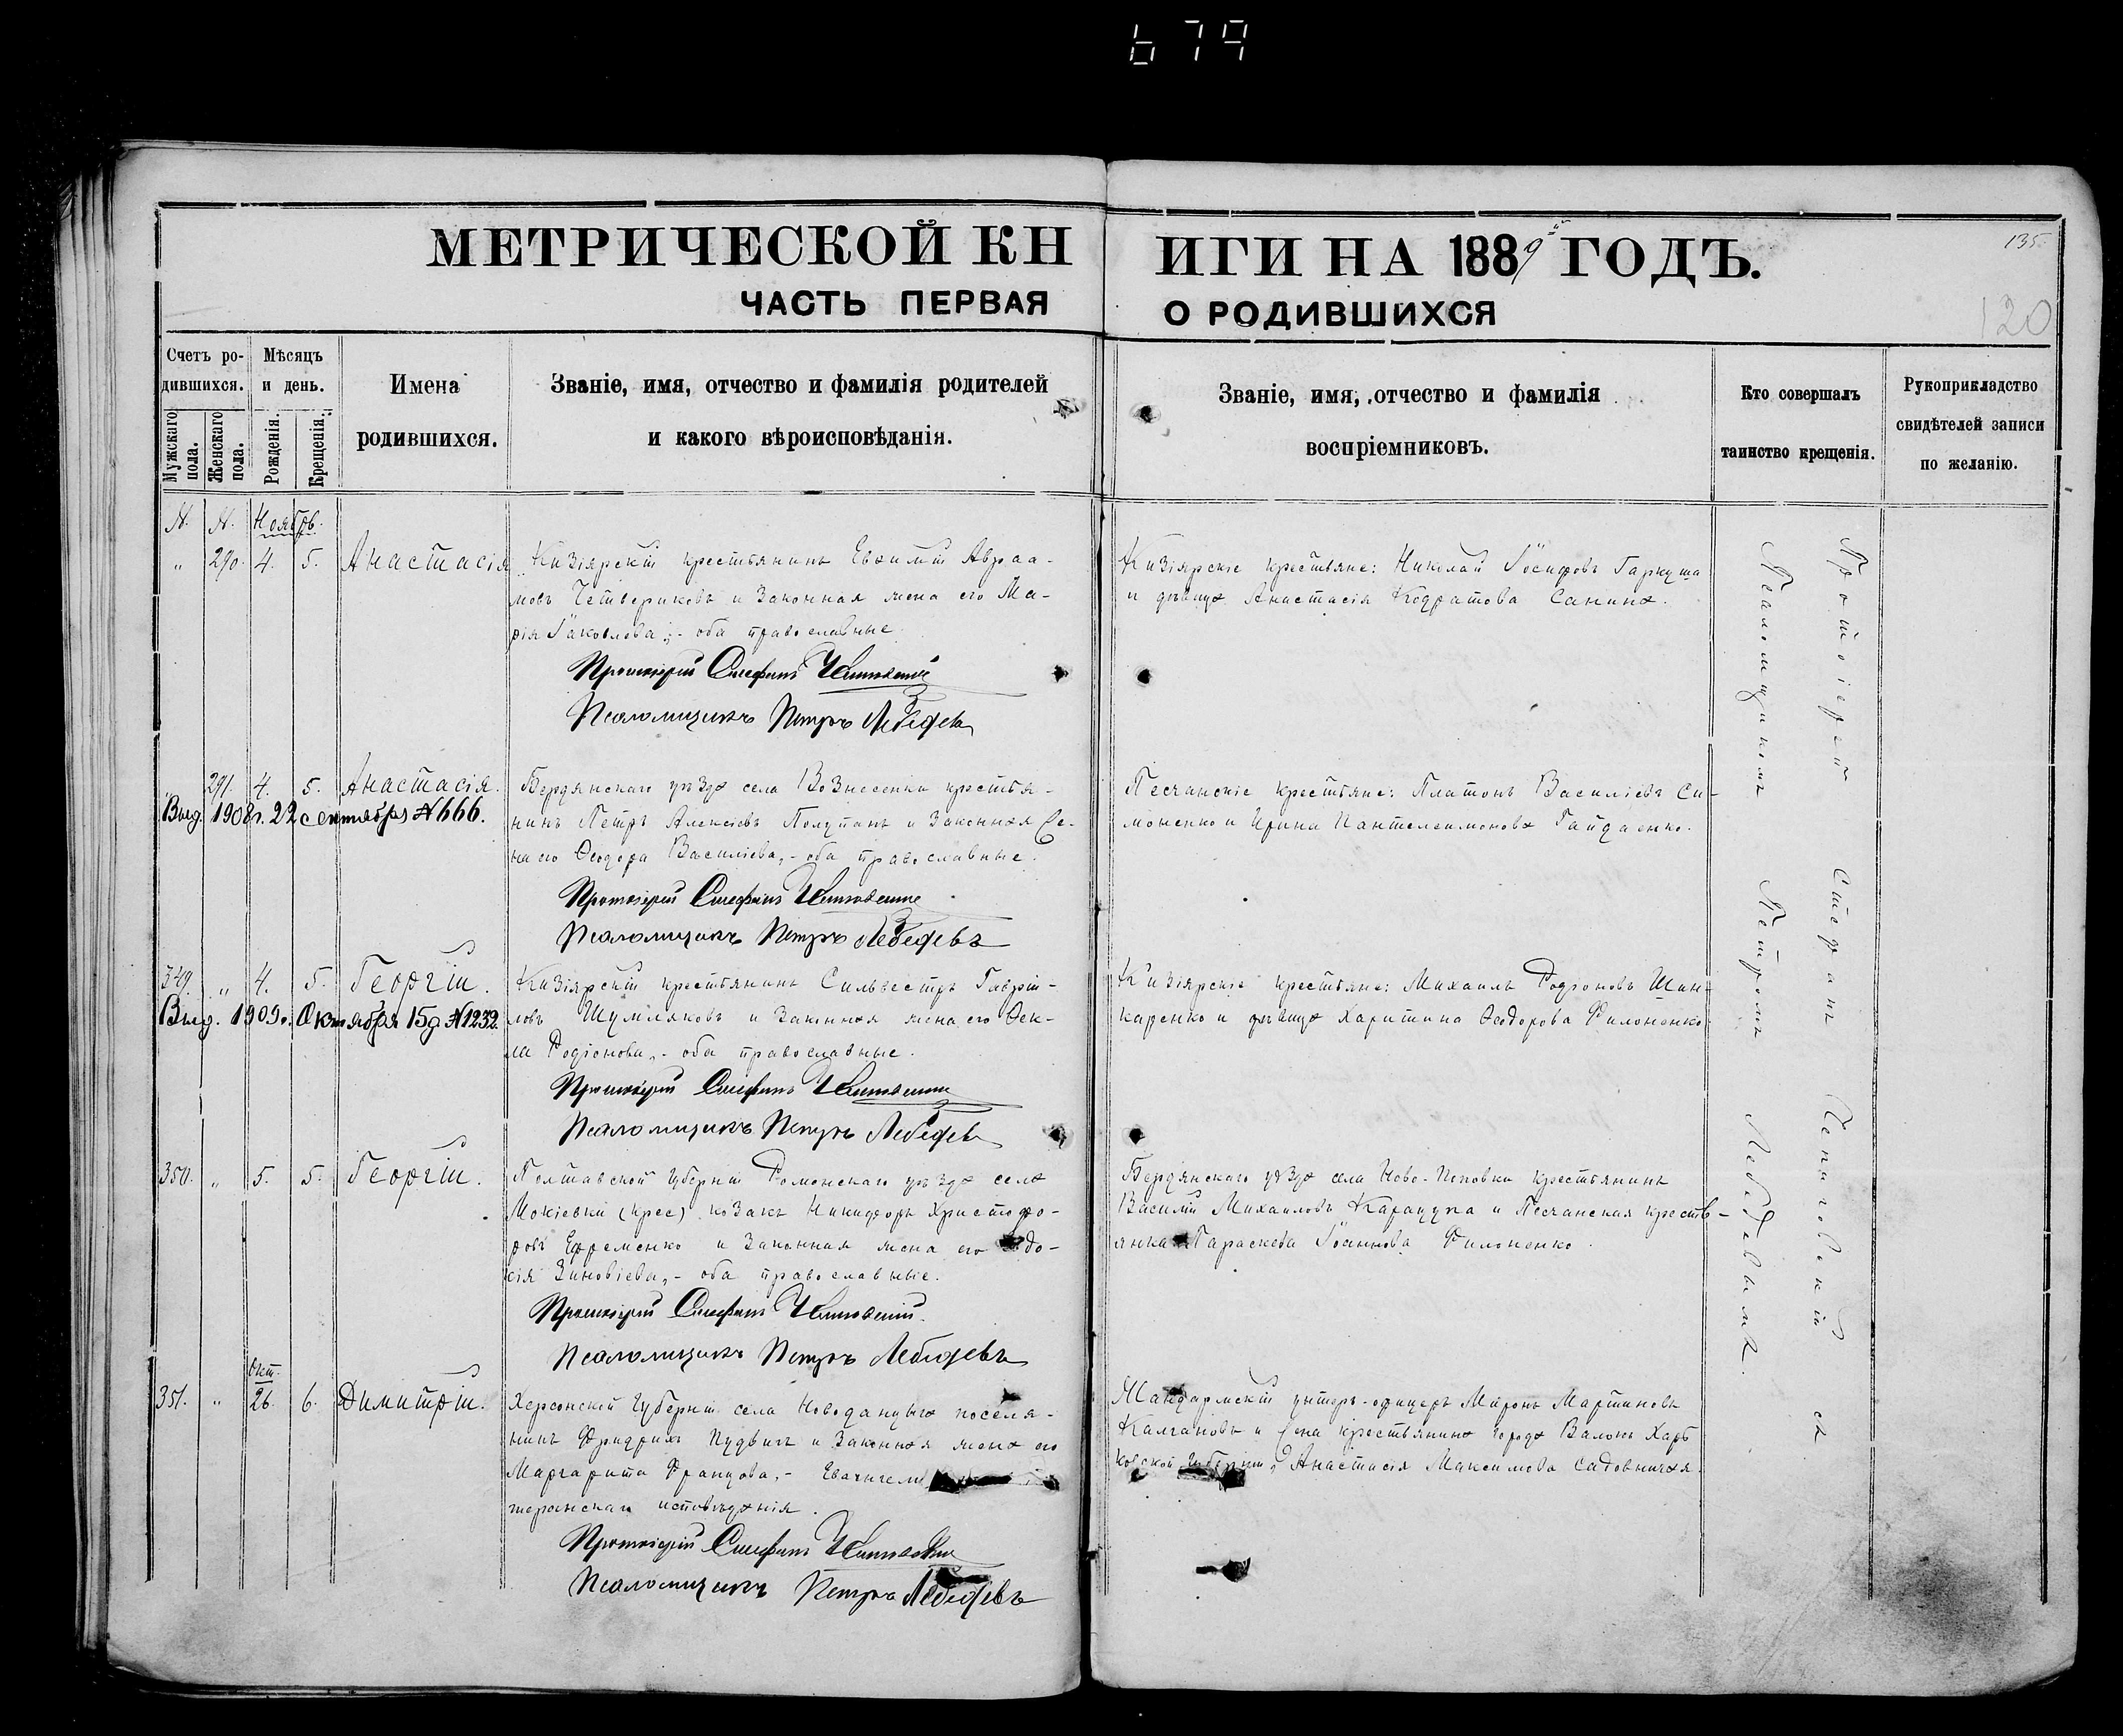 679
МЕТРИЧЕСКОЙ КНИГИ НА 1889й ГОДЪ.
135.
ЧАСТЬ ПЕРВАЯ О РОДИВШИХСЯ
120
Счетъ ро-
дившихся.
Мужскаго пола.
Женскаго пола.
Мѣсяцъ
и день.
Рожденія.
Крещенія.
Имена
родившихся.
Званіе, имя, отчество и фамилія родителей
и какого вѣроисповѣданія.
Званіе, имя, отчество и фамилія
воспріемниковъ.
Кто совершалъ
таинство крещенія.
Рукоприкладство
свидѣтелей записи
по желанію.
N. N. Ноябрь.
" 290. 4. 5. Анастасія
Кизіярскій крестьянинъ Евѳимій Авраа-
мовъ Четвериковъ и законная жена его Ма-
рія Іаковлева, - оба православные.
Протоіерей Стефанъ
Псаломщикъ Петръ Лебедевъ
Кизіярскіе крестьяне: Николай Іосифовъ Гаркуша
и дѣвица Анастасія Кодратова Санина.
" 291. 4. 5. Анастасія.
Выд. 1908г. 22 сентября N 666.
Бердянскаго уѣзда села Вознесенки крестья-
нинъ Петръ Алексіевъ Полупанъ и законная Же-
на его Ѳеодора Василіева, - оба православные.
Протоіерей Стефанъ
Псаломщикъ Петръ Лебедевъ
Песчанскіе крестьяне: Платонъ Василіевъ Си-
моненко и Ирина Пантелеимонова Гайдаенко.
349. " 4. 5. Георгій.
Выд. 1909г. Октября 15д N 1232.
Кизіярскій крестьянинъ Сильвестръ Гавріи-
ловъ Шумляковъ и законная жена его Ѳек-
ла Родіонова, - оба православные.
Протоіерей Стефанъ
Псаломщикъ Петръ Лебедевъ
Кизіярскіе крестьяне: Михаилъ Родіоновъ Шин-
каренко и дѣвица Харитина Ѳеодорова Филоненко.
350. " 5. 5. Георгій.
Полтавской губерніи Роменскаго уѣзда села
Мокіевки (крес) козакъ Никифоръ Христофо-
ровъ Ефременко и законная жена его
сія Зиновіева, - оба православные.
Протоіерей Стефанъ
Псаломщикъ Петръ Лебедевъ
Бердянскаго уѣзда села Ново-Поповки крестьянинъ
Василій Михаиловъ Карацупа и Песчанская кресть-
янка Параскева Іоаннова Филоненко.
окт.
351. " 26. 6. Димитрій.
Херсонской губерніи села поселя-
нинъ Фридрихъ и законная жена его
Маргарита Францова, -
теранскаго исповѣданія.
Протоіерей Стефанъ
Псаломщикъ Петръ Лебедевъ
Жандармскій унтеръ-офицеръ Миронъ Мартиновъ
Калгановъ и жена крестьянина города Валокъ Харь
ковской губерніи, Анастасія Максимова Садовничая.
Протоіерей Стефанъ
Псаломщикомъ Петромъ Лебедевымъ.